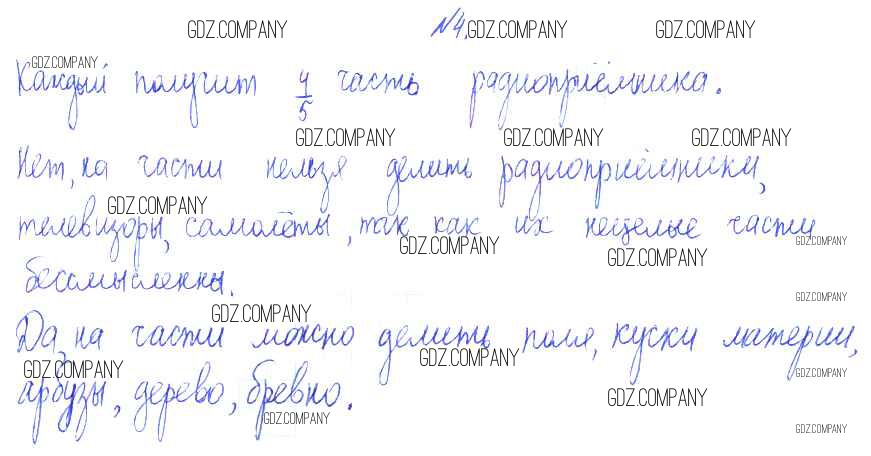 GDZ.COMPANY №4. GDZ.COMPANY GDZ.COMPANY
GDZ.COMPANY
Каждый получит 4/5 часть радиоприёмника.
GDZ.COMPANY GDZ.COMPANY GDZ.COMPANY
Нет, на части нельзя делить радиоприёмники,
GDZ.COMPANY
телевизоры, самолёты, так как их нецелые части
GDZ.COMPANY GDZ.COMPANY GDZ.COMPANY
бессмысленны.
GDZ.COMPANY GDZ.COMPANY
Да, на части можно делить поля, куски материи,
GDZ.COMPANY GDZ.COMPANY GDZ.COMPANY
арбузы, дерево, бревно.
GDZ.COMPANY GDZ.COMPANY GDZ.COMPANY